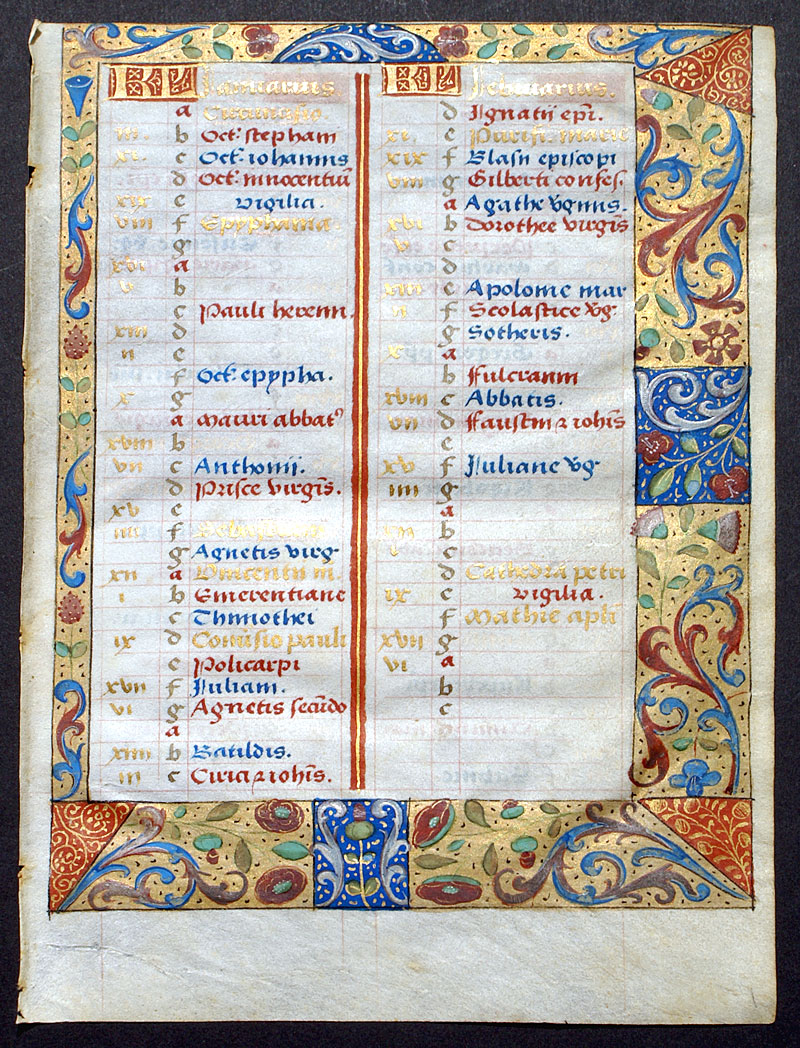 KL Januarius.
a Circumcisio.
iii. b Oct. stephani
xi. c Oct. iohannis
d Oct. innocentiū
xix e vigilia.
viii f Epyphania.
g
xvi a
v b
c Pauli heremi.
xiii d
ii e
f Oct. epypha.
x g
a Mauri abbat⁹
xviii b
vii c Anthonij.
d Prisce virgīs.
xv e
iiii f
g Agnetis virg
xii a Vincentii m.
i b Emerentiane
c Thimothei
ix d Pauli
e Policarpi
xvii f Juliani.
vi g Agnetis secūdo
a
xiiii b Batildis.
iii c Cirici ⁊ iohīs.
KL Februarius.
d Ignatii epī.
xi. e Purifi. marie
xix f Blasii episcopi
viii g Gilberti confes.
a Agathe v͛gīnis.
xvi b Dorothee virgīs
v c
d
xiii e Apolonie mar
ii f Scolastice v͛g
g Sotheris.
x a
b Fulcranni
xviii c Abbatis.
vii d Faustini ⁊ iohīs
e
xv f Juliane v͛g
iiii g
a
xii b
i c
d Cathedra petri
ix e vigilia.
f Mathie apli
xvii g
vi a
b
c